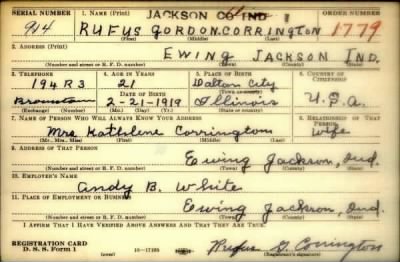 SERIAL NUMBER
1. NAME (Print)
JACKSON CO IND
ORDER NUMBER
914
RUFUS GORDON CORRINGTON
1779
(First) (Middle) (Last)
2. ADDRESS (Print)
EWING JACKSON IND.
(Number and street or R. F. D. number) (Town) (County) (State)
3. TELEPHONE
4. AGE IN YEARS
5. PLACE OF BIRTH
6. COUNTRY OF CITIZENSHIP
194R3
21
Dalton City
DATE OF BIRTH
(Town or county)
Brownstown
2-21-1919
Illinois
U.S.A.
(Exchange) (Number) (Mo.) (Day) (Yr.) (State or country)
7. NAME OF PERSON WHO WILL ALWAYS KNOW YOUR ADDRESS
8. RELATIONSHIP OF THAT PERSON
Mrs. Kathlene Corrington
Wife
(Mr., Mrs., Miss) (First) (Middle) (Last)
9. ADDRESS OF THAT PERSON
Ewing Jackson, Ind.
(Number and street or R. F. D. number) (Town) (County) (State)
10. EMPLOYER'S NAME
Andy B. White
11. PLACE OF EMPLOYMENT OR BUSINESS
Ewing Jackson, Ind.
(Number and street or R. F. D. number) (Town) (County) (State)
I AFFIRM THAT I HAVE VERIFIED ABOVE ANSWERS AND THAT THEY ARE TRUE.
REGISTRATION CARD
D. S. S. Form 1
16-17105
Rufus G. Corrington
(Registrant's signature)